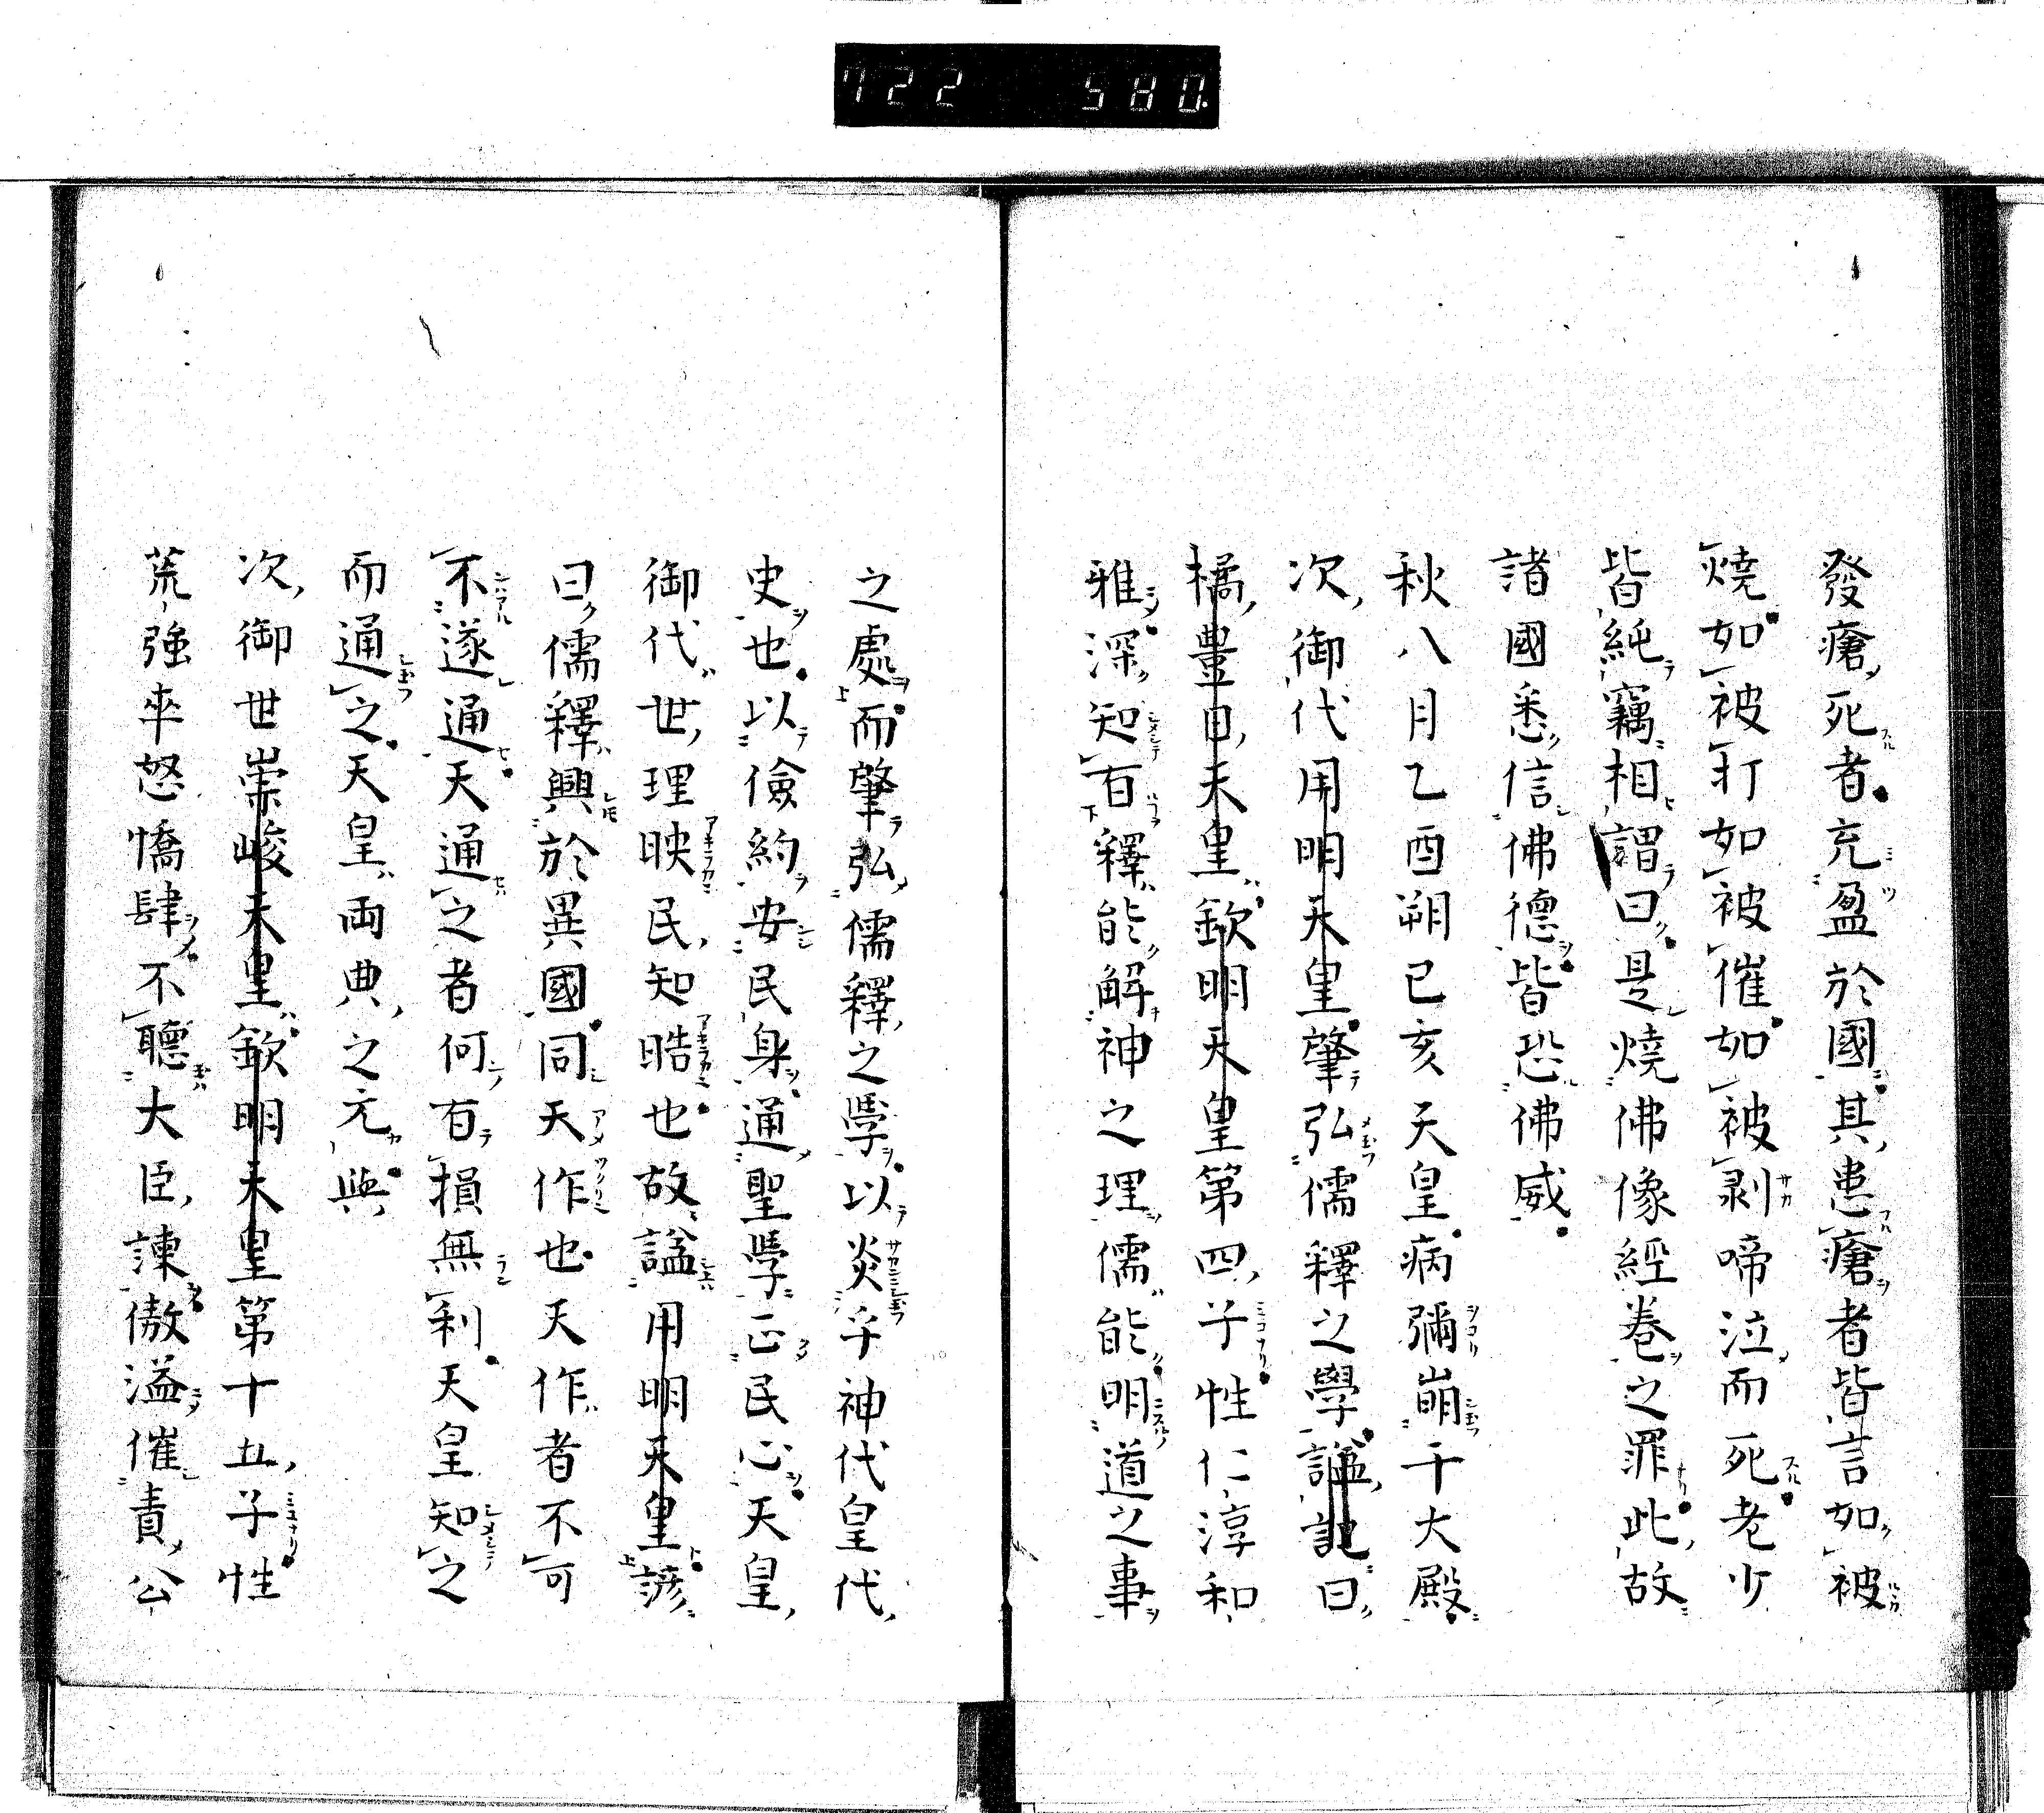 722 580.
發瘡死者充盈於國其患瘡者皆言如被
燒如被打如被催如被剥啼泣而死老少
皆純竊相謂曰是燒佛像經巻之罪此故
諸國悉信佛德皆恐佛威
秋八月乙酉朔己亥天皇病彌崩于大殿
次御代用明天皇肇弘儒釋之學謚記曰
橘豊日天皇欽明天皇第四子性仁淳和
雅深知百釋能解神之理儒能明道之事
之處而肇弘儒釋之學以炎乎神代皇代
史也以儉約安民身通聖學正民心天皇
御代世理映民知晧也故謚用明天皇諺
曰儒釋興於異國同天作也天作者不可
不遂通天通之者何百損無利天皇知之
而通之天皇両典之元與
次御世崇峻天皇欽明天皇第十五子性
荒強卒怒憍肆不聽大臣諫傲溢催責公